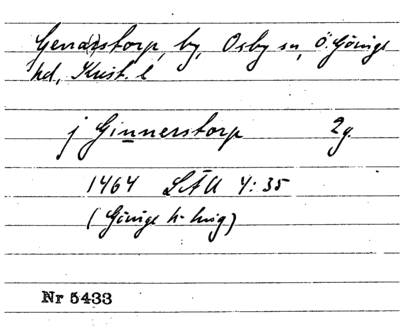 Genarstorp, by, Osby sn, Ö. Göinge
hd, Krist. l
j Ginnerstorp 2g.
1464 LÄU 4:35
(Göinge h
Nr 5433